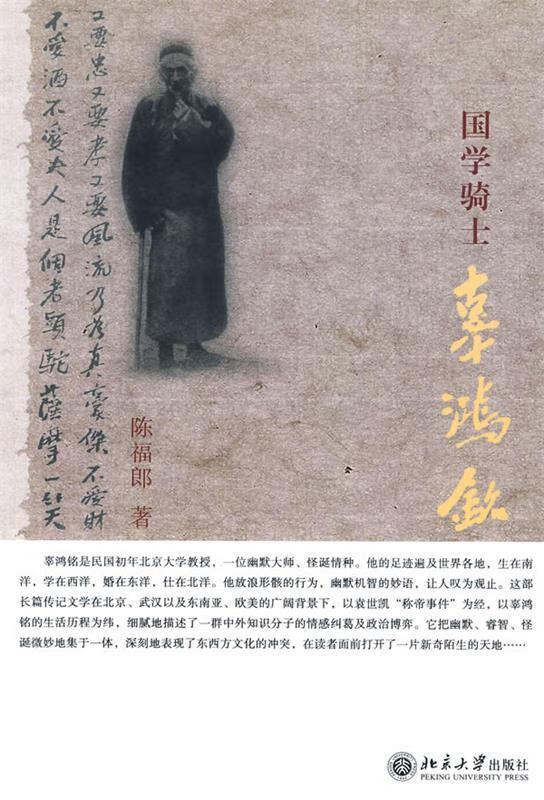 又要忠又要孝又要風流乃為真豪傑不愛財
不愛酒不愛夫人是個老頭駝薩摩
国学骑士
辜鸿铭
陈福郎 著
辜鸿铭是民国初年北京大学教授，一位幽默大师、怪诞情种。他的足迹遍及世界各地，生在南
洋，学在西洋，婚在东洋，仕在北洋。他放浪形骸的行为，幽默机智的妙语，让人叹为观止。这部
长篇传记文学在北京、武汉以及东南亚、欧美的广阔背景下，以袁世凯“称帝事件”为经，以辜鸿
铭的生活历程为纬，细腻地描述了一群中外知识分子的情感纠葛及政治博弈。它把幽默、睿智、怪
诞微妙地集于一体，深刻地表现了东西方文化的冲突，在读者面前打开了一片新奇陌生的天地……
北京大学出版社
PEKING UNIVERSITY PRESS